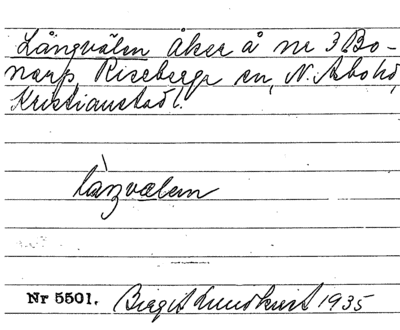 Långvälen åker å nr 3 Bo-
narp, Riseberga sn, N. Åsbo hd,
Kristianstad l.
långvælen
Nr 5501. Birgit Lundkvist 1935